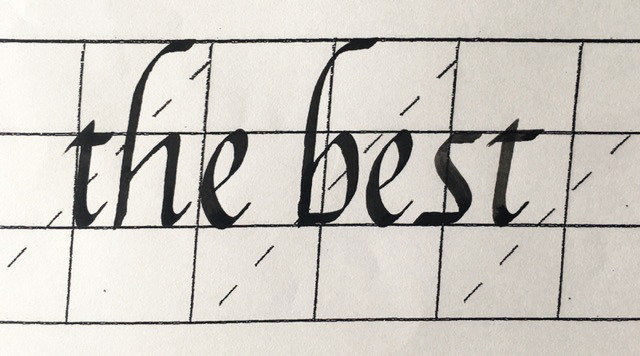 the best